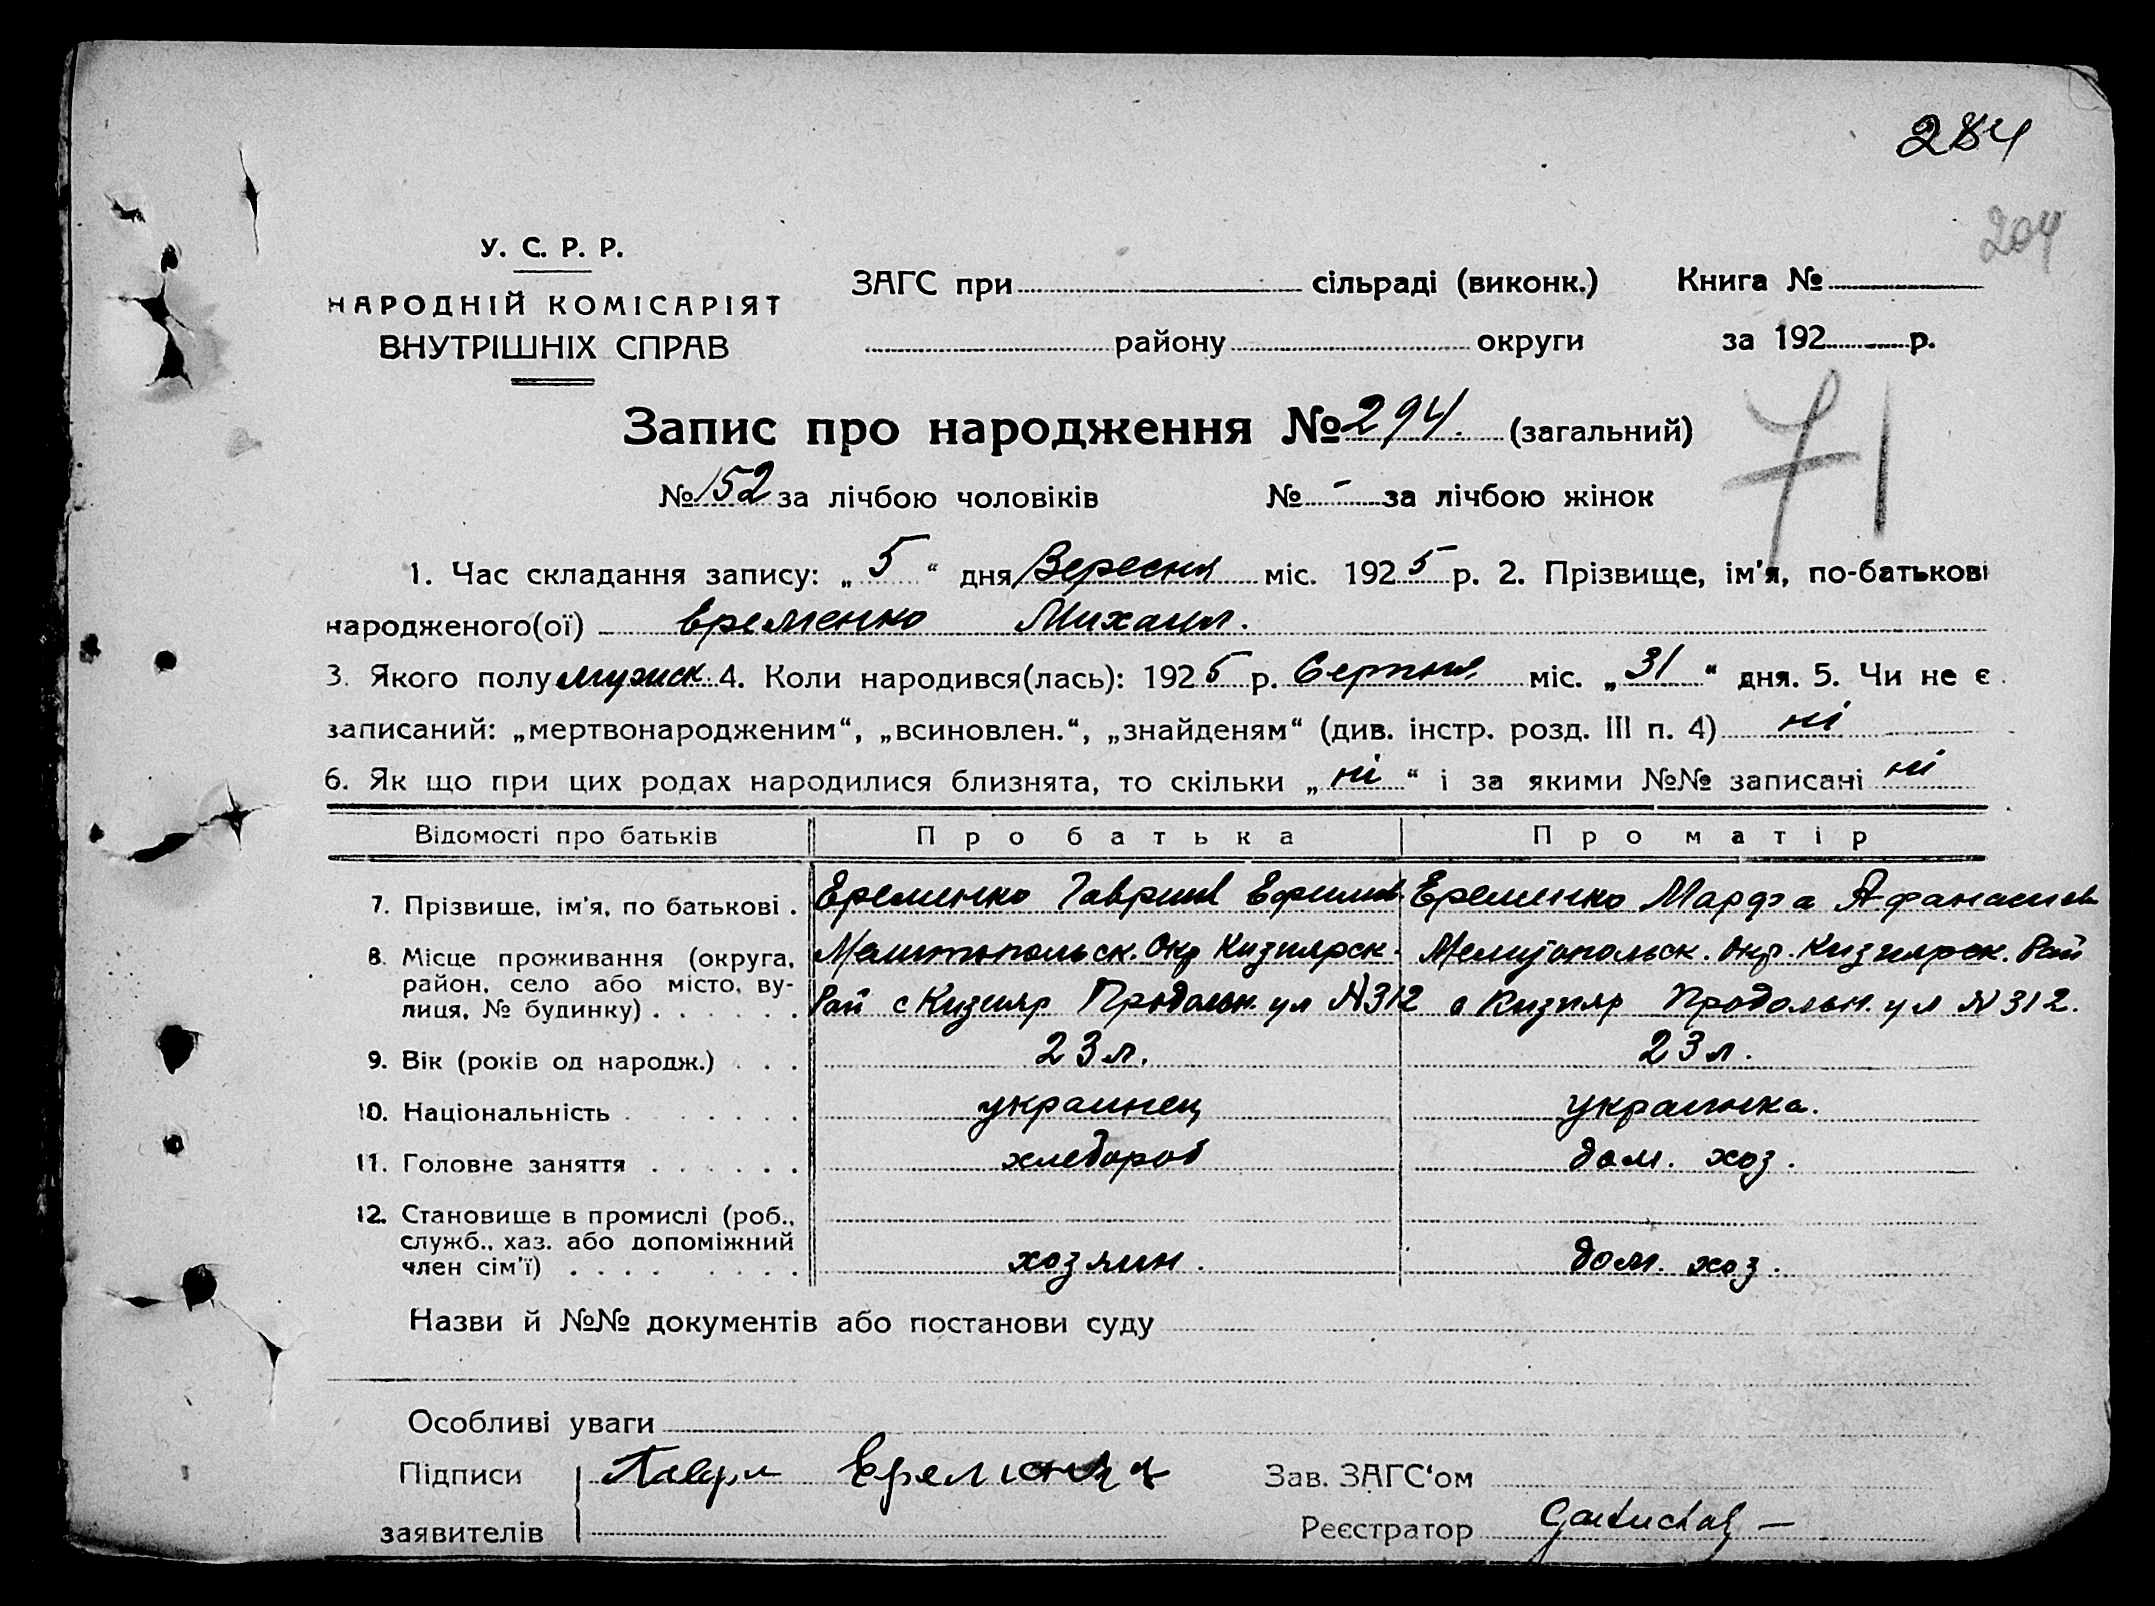 284
204
У. С. Р. Р.
НАРОДНІЙ КОМІСАРІЯТ
ВНУТРІШНІХ СПРАВ
ЗАГС при сільраді (виконк.) Книга №
району округи за 192 р.
71
Запис про народження № 294. (загальний)
№ 152 за лічбою чоловіків № - за лічбою жінок
1. Час складання запису: „ 5 “ дня Вересня міс. 192 5 р. 2. Прізвище, ім'я, по-батькові
народженого(ої) Еременко Михаил.
3. Якого полу мужск 4. Коли народився(лась): 192 5 р. Серпня міс. „ 31 “ дня. 5. Чи не є
записаний: „мертвонародженим“, „всиновлен.“, „знайденям“ (див. інстр. розд. III п. 4) ні
6. Як що при цих родах народилися близнята, то скільки „ ні “ і за якими №№ записані ні
Відомості про батьків Про батька Про матір
7. Прізвище, ім'я, по батькові . Еременко Гавриил Ефимов. Еременко Марфа Афанасиев
8. Місце проживання (округа, Мелитопольск. Окр Кизиярск. Мелитопольск. Окр. Кизиярск. Рай
район, село або місто, ву-
лиця, № будинку) . . . . . . Рай с Кизияр Продольн. ул № 312 с Кизияр Продольн. ул № 312.
9. Вік (років од народж.) . . . 23 л. 23 л.
10. Національність . . . . . . украинец украинка.
11. Головне заняття . . . . . . хлебороб дом. хоз.
12. Становище в промислі (роб.,
служб., хаз. або допоміжний
член сім'ї) . . . . . . . . хозяин. дом. хоз.
Назви й №№ документів або постанови суду
Особливі уваги
Підписи Гаврил Еременко Зав. ЗАГС‘ом
заявителів Реєстратор